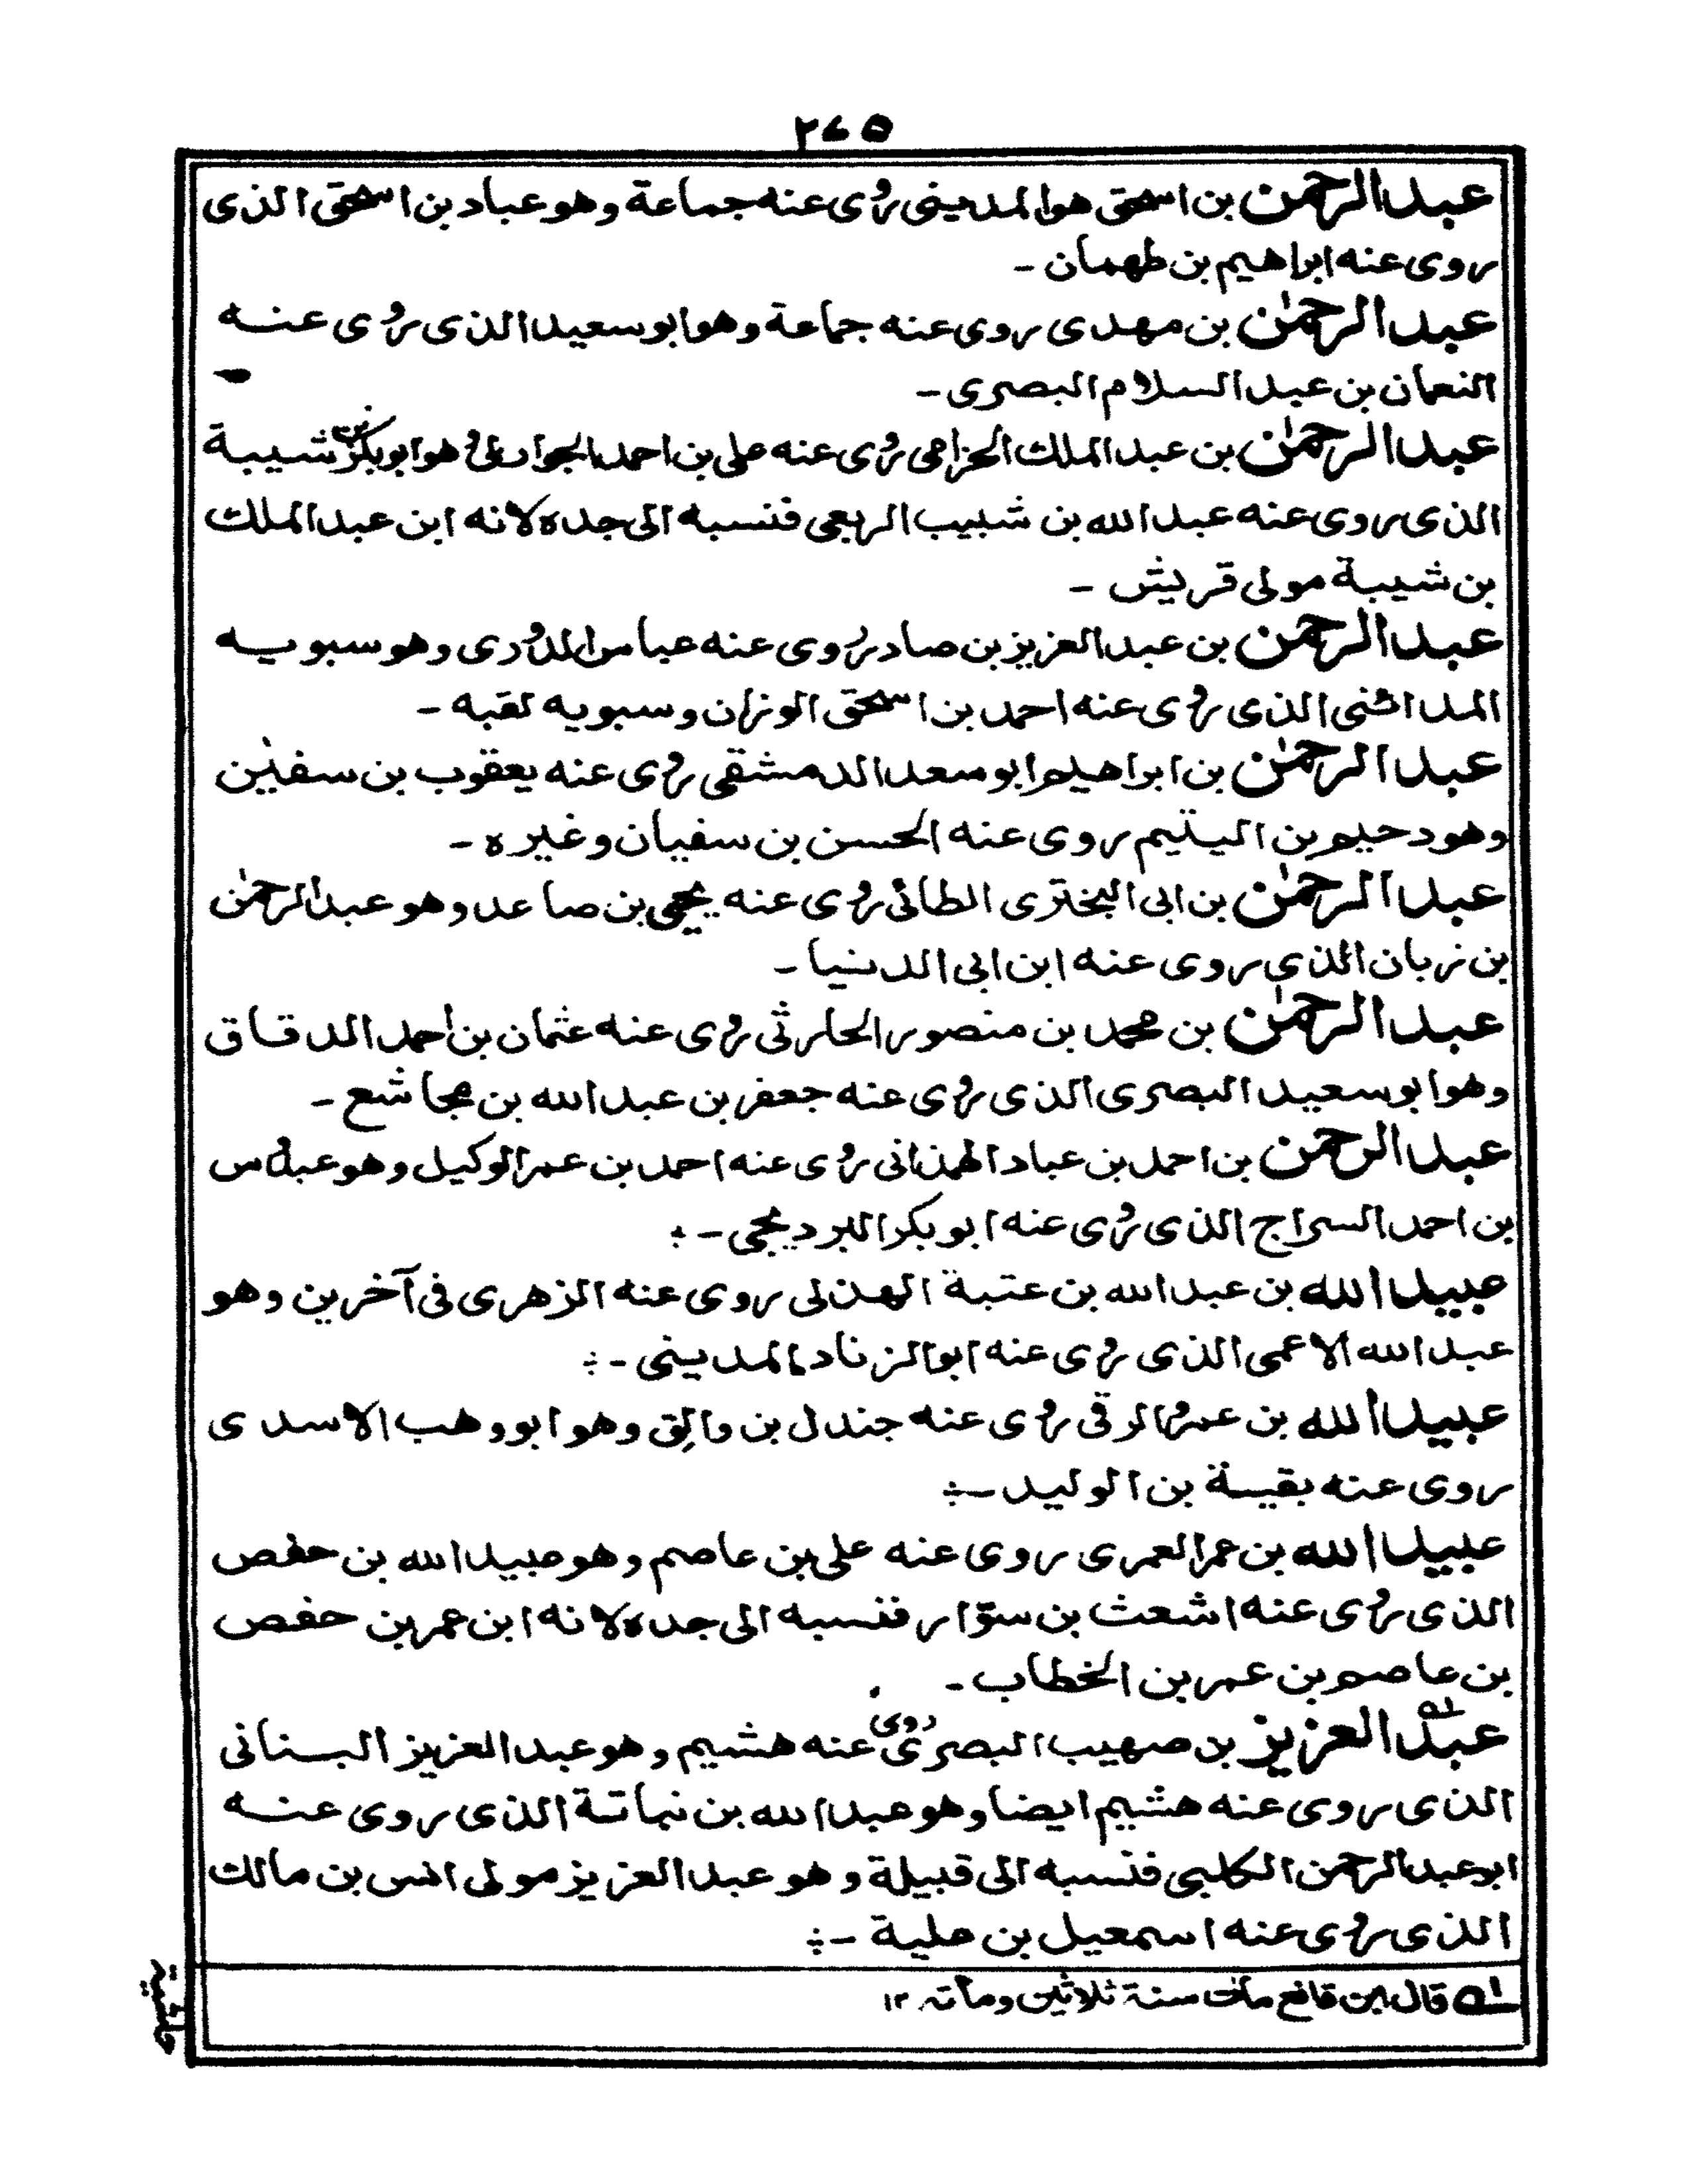 ٢٧٥
عبدالرحمن بن اسحق هوالمدينى روى عنه جماعة وهو عباد بن اسحق الذى
روى عنه ابراهيم بن طهمان -
عبدالرحمٰن بن مهدى روى عنه جماعة وهوابو سعيدالذى روى عنه
النعمان بن عبدالسلام البصرى -
عبدالرحمٰن بن عبدالملك الحزامى روى عنه على بن احمدالجواربى وهوابوبكربن شيبة
الذى روى عنه عبدالله بن شبيب الربعى فنسبه الى جده لانه ابن عبدالملك
بن شيبة مولى قريش -
عبدالرحمن بن عبدالعزيزبن صادر روى عنه عباس الدورى وهو سبويه
المدائنى الذى روى عنه احمد بن اسحق الوزان وسبويه لقبه -
عبدالرحمٰن بن ابراهيم ابو سعدالدمشقى روى عنه يعقوب بن سفيٰن
وهو دحيم بن اليتيم روى عنه الحسن بن سفيان وغيره -
عبدالرحمٰن بن ابى البخترى الطائى روى عنه يحيى بن صاعد وهو عبدالرحمٰن
بن زبان الذى روى عنه ابن ابى الدنيا -
عبدالرحمٰن بن محمد بن منصور الحارثى روى عنه عثمان بن احمدالدقاق
وهوابو سعيد البصرى الذى روى عنه جعفر بن عبدالله بن مجاشع -
عبدالرحمن بن احمد بن عباد الهمذانى روى عنه احمد بن عمرالوكيل وهو عبدوس
بن احمدالسراج الذى روى عنه ابوبكرالبرديجى -
عبيدالله بن عبدالله بن عتبة الهذلى روى عنه الزهرى فى آخرين وهو
عبدالله الاعمى الذى روى عنه ابوالزناد المدينى -
عبيدالله بن عمروالرقى روى عنه جندل بن والق وهوابو وهب الاسدى
روى عنه بقية بن الوليد -
عبيدالله بن عمرالعمرى روى عنه على بن عاصم وهو عبيدالله بن حفص
الذى روى عنه اشعث بن سوّار فنسبه الى جده لانه ابن عمر بن حفص
بن عاصم بن عمر بن الخطاب -
عبدالعزيز بن صهيب البصرى روى عنه هشيم وهو عبدالعزيز البنانى
الذى روى عنه هشيم ايضا وهو عبدالله بن نباتة الذى روى عنه
ابوعبدالرحمن الكلبى فنسبه الى قبيلة وهو عبدالعزيز مولى انس بن مالك
الذى روى عنه اسمعيل بن علية -
لـه قال ابن قانع مات سنة ثلاثين ومأته ١٢
حاشية